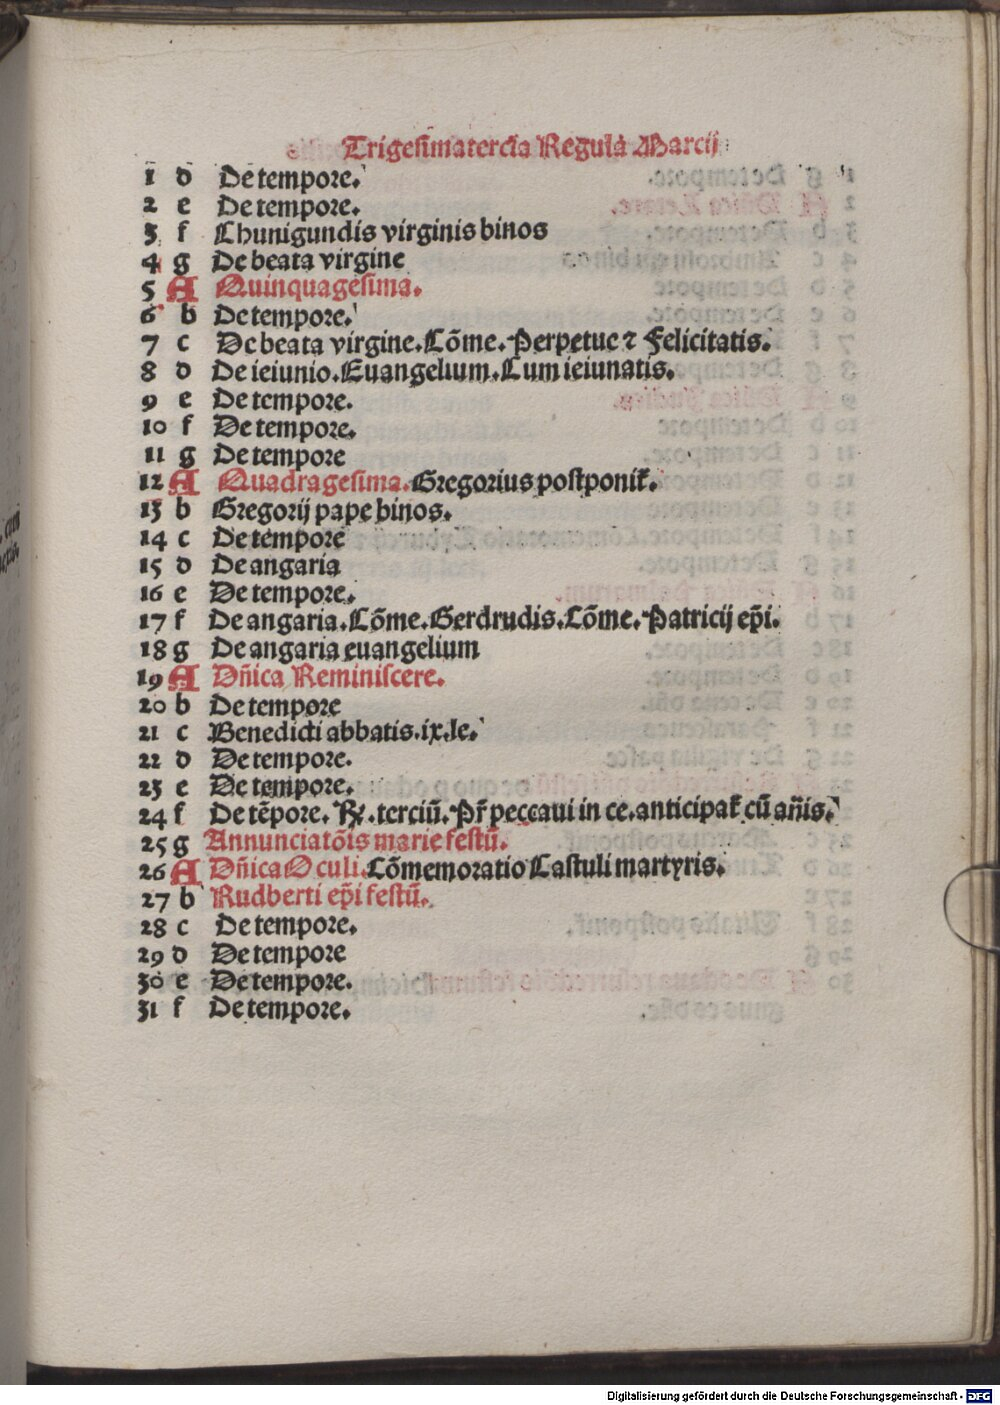 Trigesimatercia Regula Marcij
1 d De tempore.
2 e De tempore.
3 f Chunigundis virginis binos
4 g De beata virgine
5 A Quinquagesima.
6 b De tempore.
7 c De beata virgine. Cõme. Perpetue ⁊ Felicitatis.
8 d De ieiunio. Euangelium. Cum ieiunatis.
9 e De tempore.
10 f De tempore.
11 g De tempore
12 A Quadragesima. Gregorius postponit̃.
13 b Gregorij pape binos.
14 c De tempore
15 d De angaria
16 e De tempore.
17 f De angaria. Cõme. Gerdrudis. Cõme. Patricij ep̃i.
18 g De angaria euangelium
19 A Dñica Reminiscere.
20 b De tempore
21 c Benedicti abbatis. ix. le.
22 d De tempore.
23 e De tempore.
24 f De tẽpore. ℞. terciũ. Pr̃ peccaui in ce. anticipat̃ cũ añis.
25 g Annunciatõis marie festũ.
26 A Dñica Oculi. Cõmemoratio Castuli martyris.
27 b Rudberti ep̃i festũ.
28 c De tempore.
29 d De tempore
30 e De tempore.
31 f De tempore.
Digitalisierung gefördert durch die Deutsche Forschungsgemeinschaft - DFG